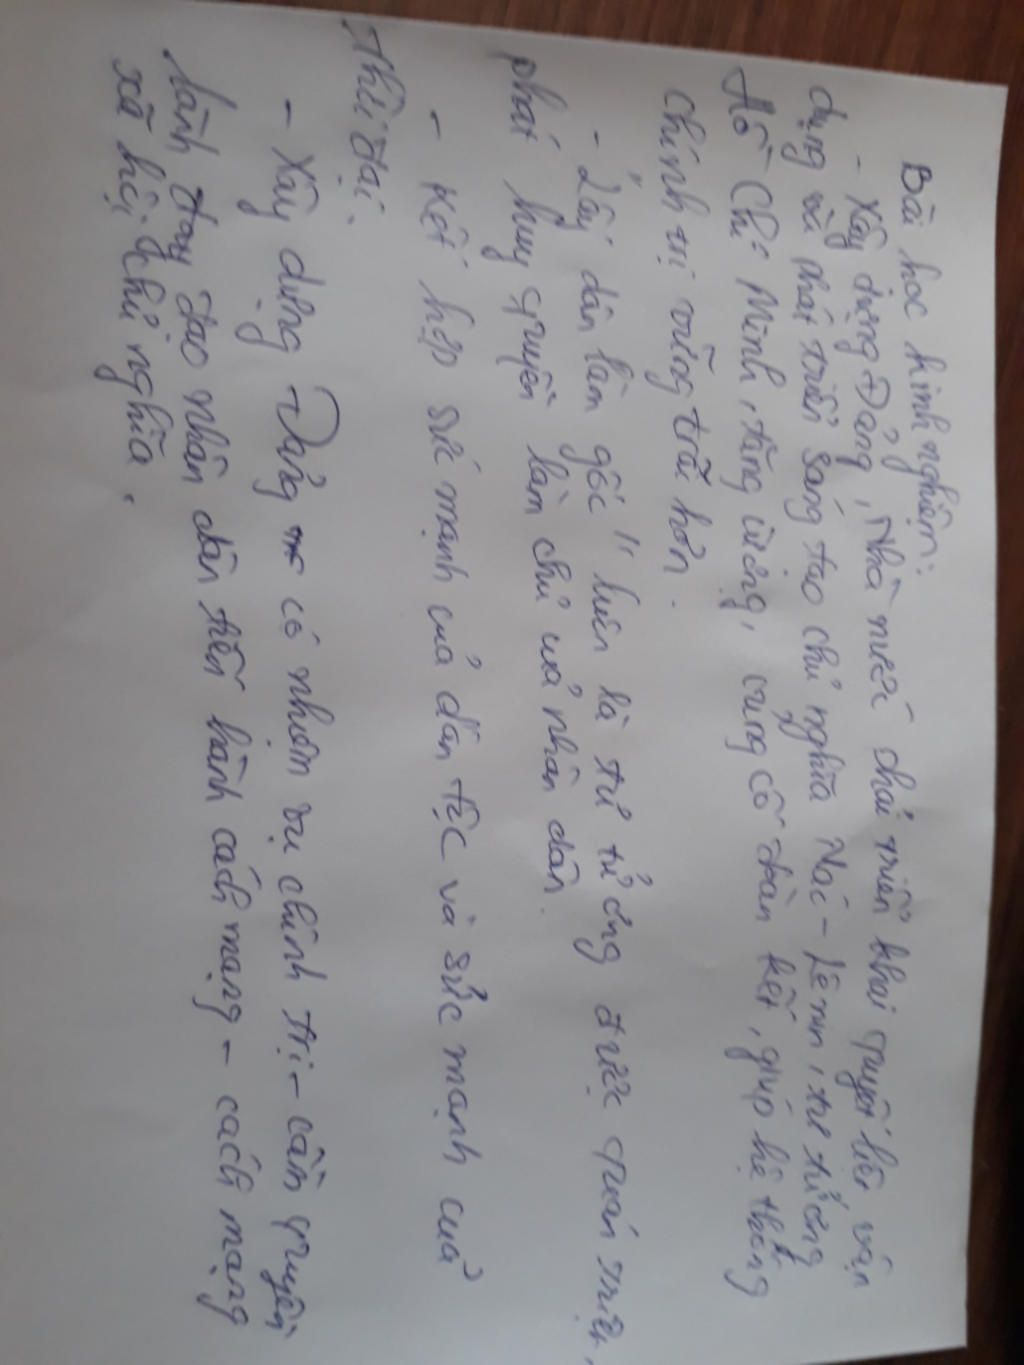 Bài học kinh nghiệm:
- Xây dựng Đảng, Nhà nước phải triển khai quyết liệt vận
dụng và phát triển sáng tạo chủ nghĩa Mác - Lênin, tư tưởng
Hồ Chí Minh, tăng cường, củng cố đoàn kết, giúp hệ thống
chính trị vững trãi hơn.
- "Lấy dân làm gốc" luôn là tư tưởng được quán triệt,
phát huy quyền làm chủ của nhân dân.
- Kết hợp sức mạnh của dân tộc và sức mạnh của
thời đại.
- Xây dựng Đảng có nhiệm vụ chính trị - cầm quyền
lãnh đạo nhân dân tiến hành cách mạng - cách mạng
xã hội chủ nghĩa.